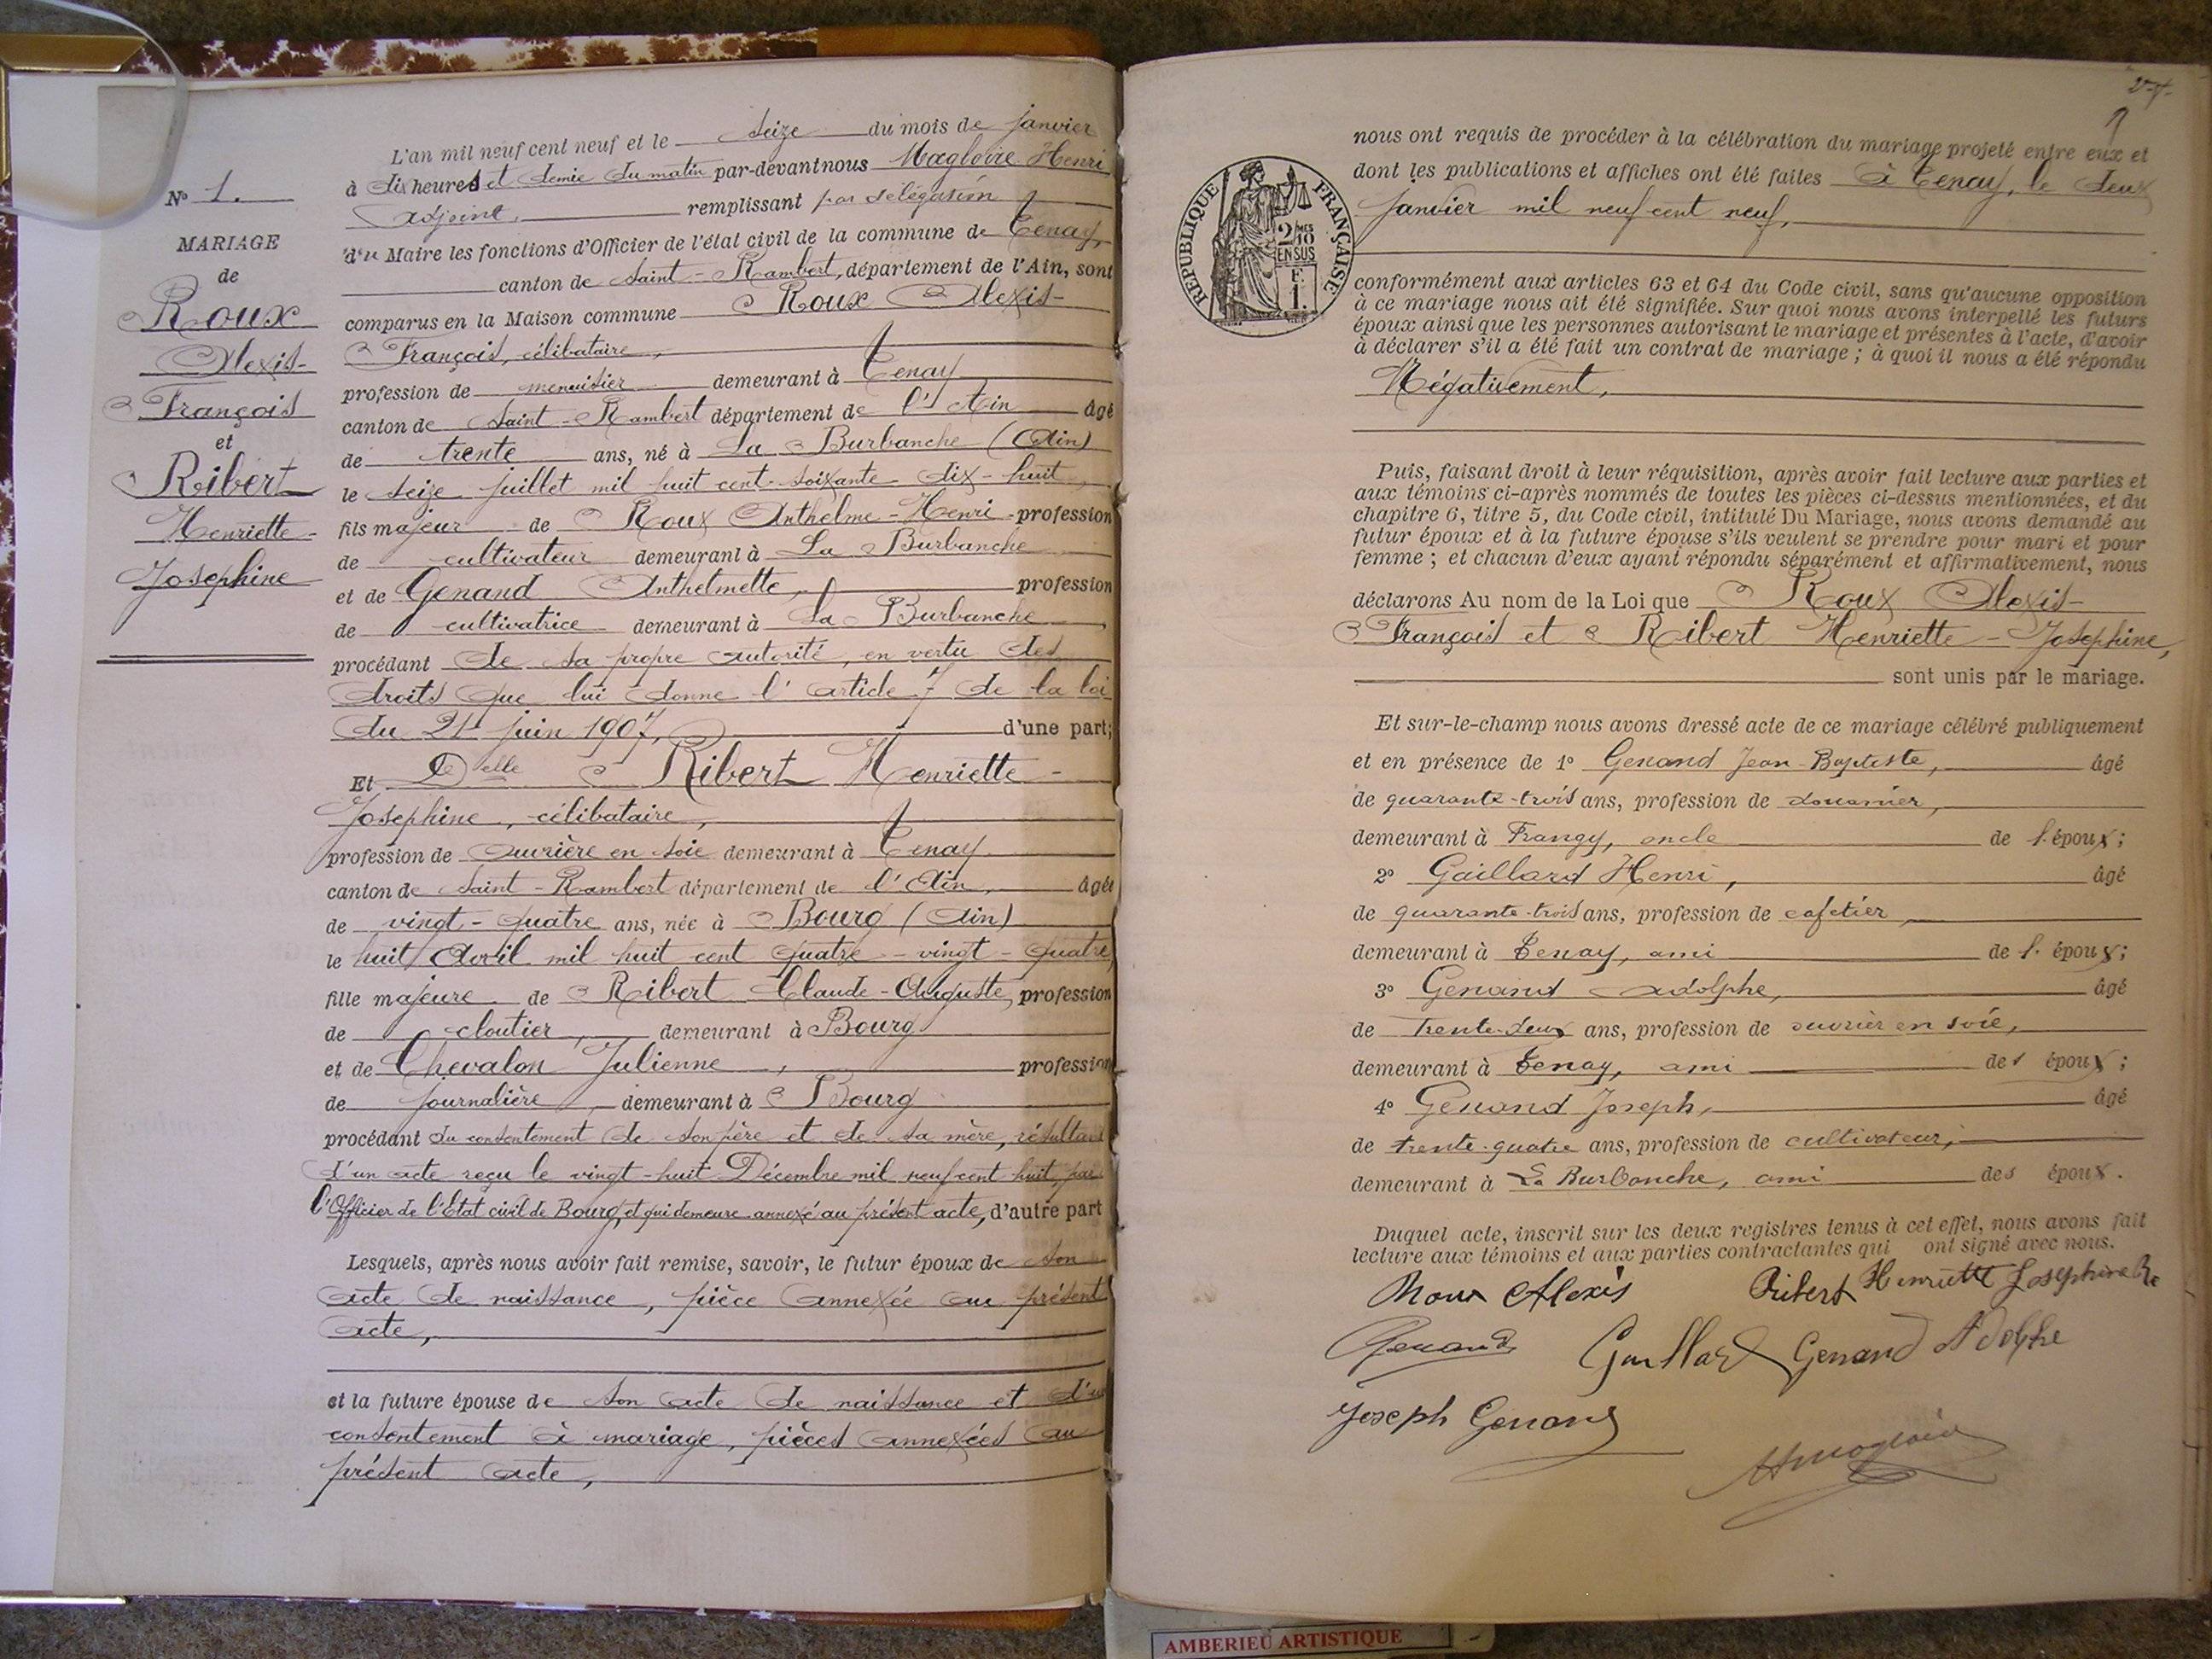 N° 1.
MARIAGE
de
Roux
Alexis-
François
et
Ribert
Henriette-
Josephine
L'an mil neuf cent neuf et le seize du mois de janvier
à dix heures et demie du matin par-devant nous Magloire Henri
adjoint, remplissant par délégation
du Maire les fonctions d'Officier de l'état civil de la commune de Tenay,
canton de Saint-Rambert, département de l'Ain, sont
comparus en la Maison commune Roux Alexis-
François, célibataire,
profession de menuisier demeurant à Tenay
canton de Saint-Rambert département de l'Ain âgé
de trente ans, né à La Burbanche (Ain)
le seize juillet mil huit cent soixante-dix-huit,
fils majeur de Roux Anthelme-Henri profession
de cultivateur demeurant à La Burbanche
et de Genand Anthelmette, profession
de cultivatrice demeurant à La Burbanche,
procédant de sa propre autorité, en vertu des
droits que lui donne l'article 7 de la loi
du 21 juin 1907, d'une part;
Et Delle Ribert Henriette-
Josephine, célibataire,
profession de Ouvrière en soie demeurant à Tenay
canton de Saint-Rambert département de l'Ain, âgée
de vingt-quatre ans, née à Bourg (Ain)
le huit Avril mil huit cent quatre-vingt-quatre,
fille majeure de Ribert Claude-Auguste, profession
de cloutier, demeurant à Bourg
et de Chevalon Julienne, profession
de journalière, demeurant à Bourg
procédant du consentement de son père et de sa mère, résultant
d'un acte reçu le vingt-huit Décembre mil neuf cent huit, par
l'Officier de l'Etat civil de Bourg, et qui demeure annexé au présent acte, d'autre part
Lesquels, après nous avoir fait remise, savoir, le futur époux de son
acte de naissance, pièce annexée au présent
acte,
et la future épouse de son acte de naissance et d'un
consentement à mariage, pièces annexées au
présent acte,
nous ont requis de procéder à la célébration du mariage projeté entre eux et
dont les publications et affiches ont été faites à Tenay, le deux
janvier mil neuf cent neuf,
RÉPUBLIQUE FRANÇAISE
2/10
MES
EN SUS
F.
1.
conformément aux articles 63 et 64 du Code civil, sans qu'aucune opposition
à ce mariage nous ait été signifiée. Sur quoi nous avons interpellé les futurs
époux ainsi que les personnes autorisant le mariage et présentes à l'acte, d'avoir
à déclarer s'il a été fait un contrat de mariage ; à quoi il nous a été répondu
Négativement,
Puis, faisant droit à leur réquisition, après avoir fait lecture aux parties et
aux témoins ci-après nommés de toutes les pièces ci-dessus mentionnées, et du
chapitre 6, titre 5, du Code civil, intitulé Du Mariage, nous avons demandé au
futur époux et à la future épouse s'ils veulent se prendre pour mari et pour
femme ; et chacun d'eux ayant répondu séparément et affirmativement, nous
déclarons Au nom de la Loi que Roux Alexis-
François et Ribert Henriette-Josephine,
sont unis par le mariage.
Et sur-le-champ nous avons dressé acte de ce mariage célébré publiquement
et en présence de 1° Genand Jean-Baptiste, âgé
de quarante-trois ans, profession de douanier,
demeurant à Frangy, oncle de l'époux;
2° Gaillard Henri, âgé
de quarante-trois ans, profession de cafetier,
demeurant à Tenay, ami de l'époux;
3° Genand Adolphe, âgé
de trente-deux ans, profession de ouvrier en soie,
demeurant à Tenay, ami des époux;
4° Genand Joseph, âgé
de trente-quatre ans, profession de cultivateur,
demeurant à La Burbanche, ami des époux.
Duquel acte, inscrit sur les deux registres tenus à cet effet, nous avons fait
lecture aux témoins et aux parties contractantes qui ont signé avec nous.
Roux Alexis Ribert Henriette Josephine
Genand Gaillard Genand Adolphe
Joseph Genand
Hmagloire
AMBERIEU ARTISTIQUE